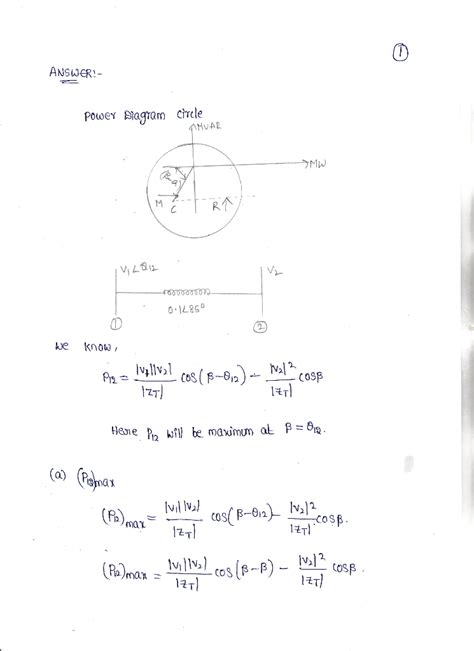 ①
ANSWER:-
Power Diagram Circle
MVAR
MW
M
C
R
V₁∠θ₁₂
V₂
0.1∠85°
①
②
We know,
P₁₂ = |V₁||V₂|/|Z_T| cos(β-θ₁₂) - |V₂|²/|Z_T| cosβ
Here P₁₂ will be maximum at β = θ₁₂.
(a) (P₁₂)max
(P₁₂)max = |V₁||V₂|/|Z_T| cos(β-θ₁₂) - |V₂|²/|Z_T| cosβ.
(P₁₂)max = |V₁||V₂|/|Z_T| cos(β-β) - |V₂|²/|Z_T| cosβ.